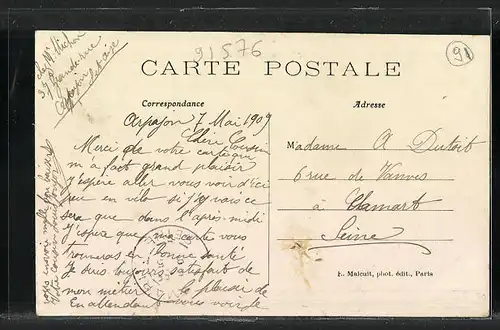 91576
91
CARTE POSTALE
Correspondance
Adresse
37 Grande rue
Arpajon
Arpajon 7 Mai 1909
Chère Cousin
Merci de votre carte qui
m'a fait grand plaisir
J'espère aller vous voir d'ici
que en vélo si j'y vais ce
sera que dans l'après-midi
J'espère que ma carte vous
trouveras en Bonne santé
Je suis toujours satisfait de
mon métier
En attendant le plaisir de
vous voir je
vous envoie mille bons baisers
Votre cousin
Madame A Dutoit
6 rue de Vanves
à Clamart
Seine
E. Malcuit, phot. édit., Paris